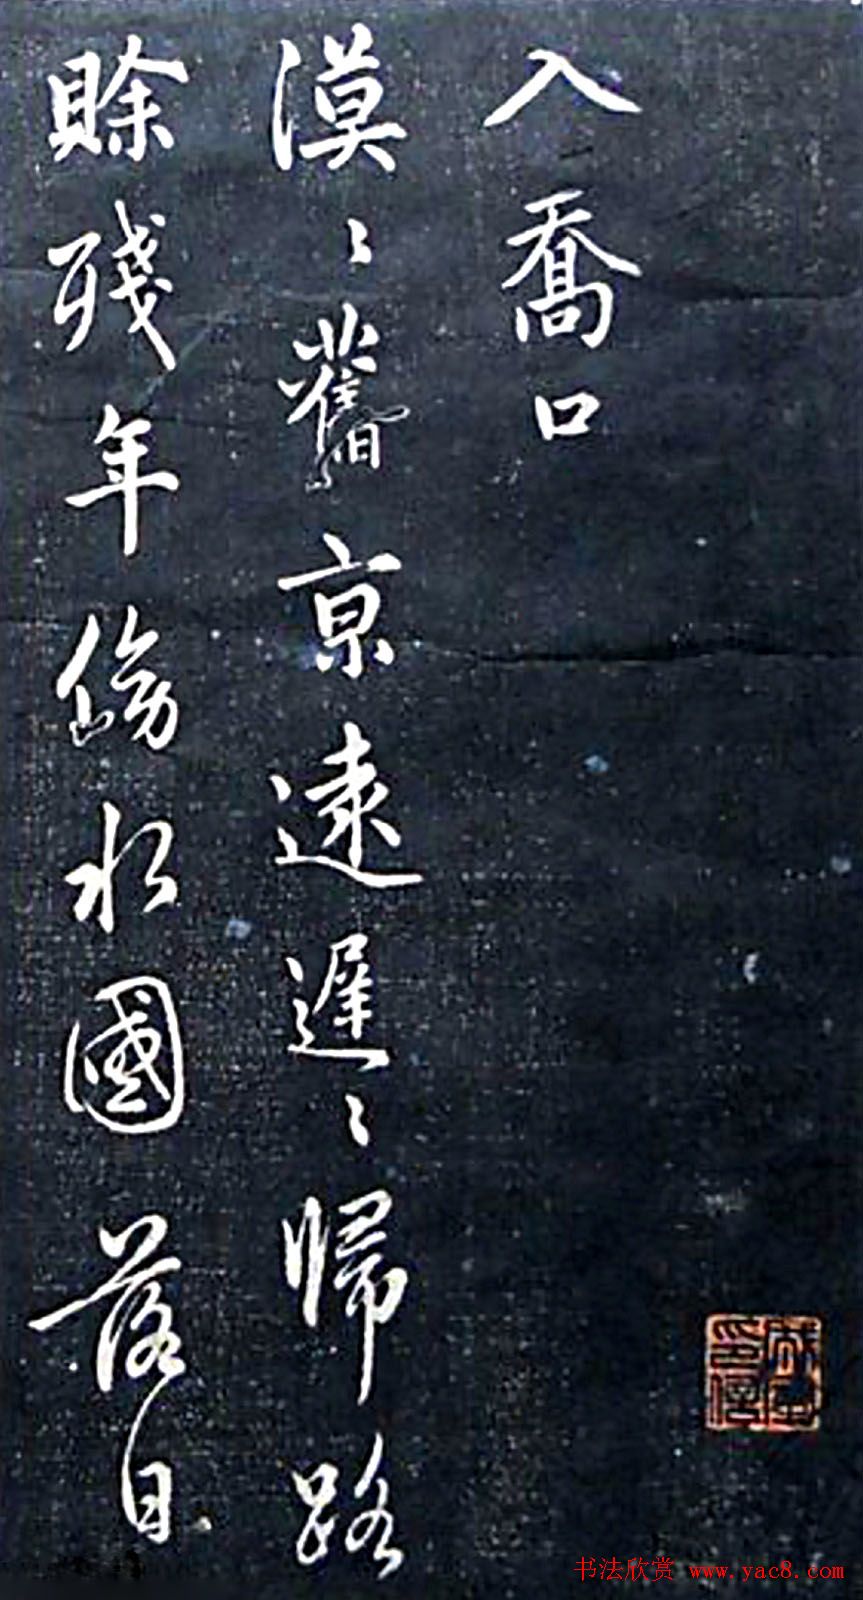 入喬口
漠〻舊京遠遲〻歸路
賒殘年傍水國落日
書法欣赏 www.yac8.com